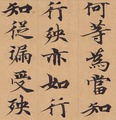 何等為當知
行殃亦如行
知從漏受殃